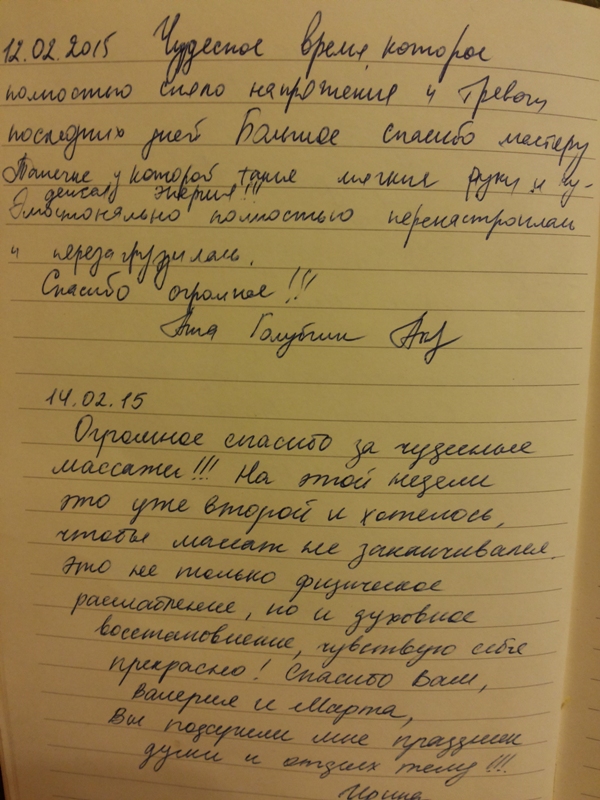 12.02.2015 Чудесное время, которое
полностью сняло напряжение и тревоги
последних дней Большое спасибо мастеру
Танечке у которой такие мягкие руки и чу-
десная энергия!!!
Эмоционально полностью перенастроилась
и перезагрузилась.
Спасибо огромное!!!
14.02.15
Огромное спасибо за чудесные
массажи!!! На этой недели
это уже второй и хотелось,
чтобы массаж не заканчивался.
Это не только физическое
расслабление, но и духовное
восстановление, чувствую себя
прекрасно! Спасибо Вам,
Валерия и Марта,
Вы подарили мне праздник
души и отдых телу!!!